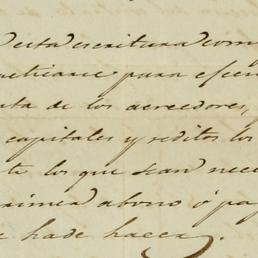 desta escritura com
para
ta de los acreedores,
capitales y reditos los
te los que sean nece
primea abono ó pa
e hade hacer.